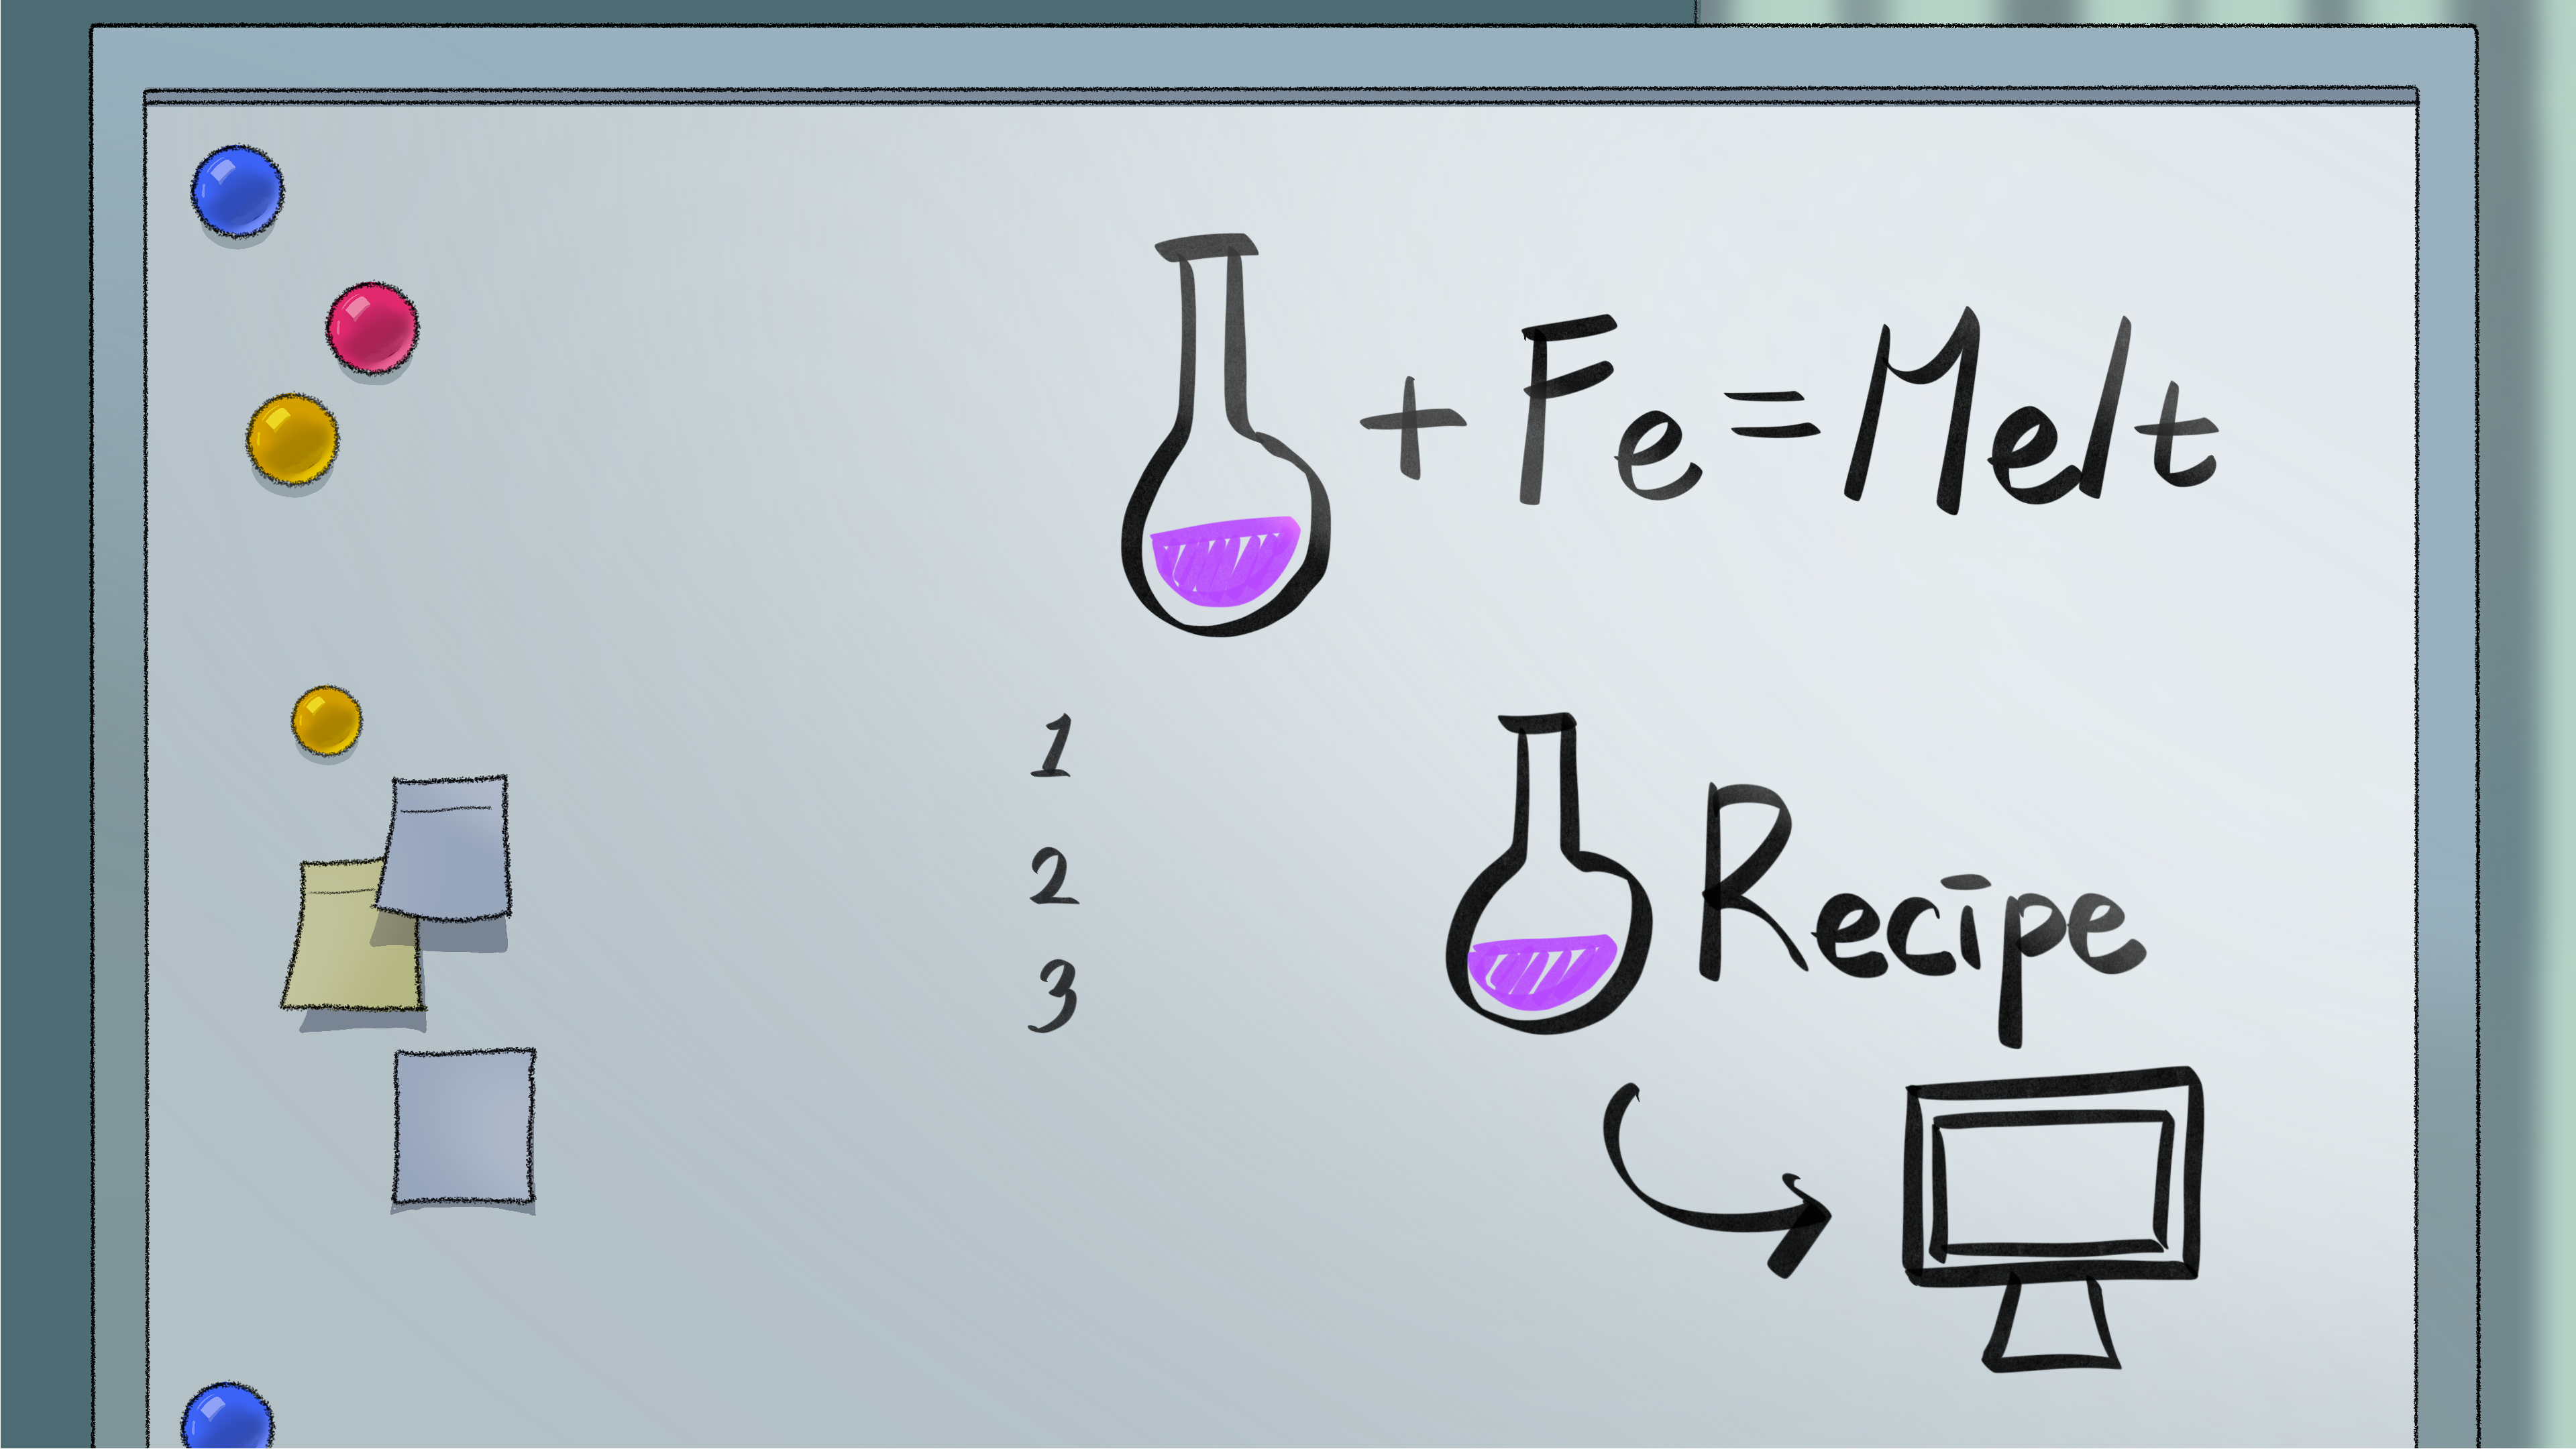 + Fe = Melt
1
2
3
Recipe